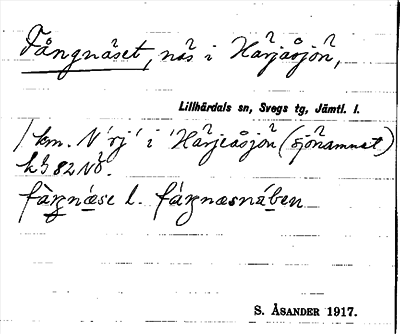 Fångnäset, näs i Härjåsjön,
Lillhärdals sn, Svegs tg, Jämtl. l.
1 km. N "rj" i "Härjeåsjön (sjönamnet)
k 3 82 NÖ.
fàŋnæse l. fáŋnæsnáben
S. ÅSANDER 1917.